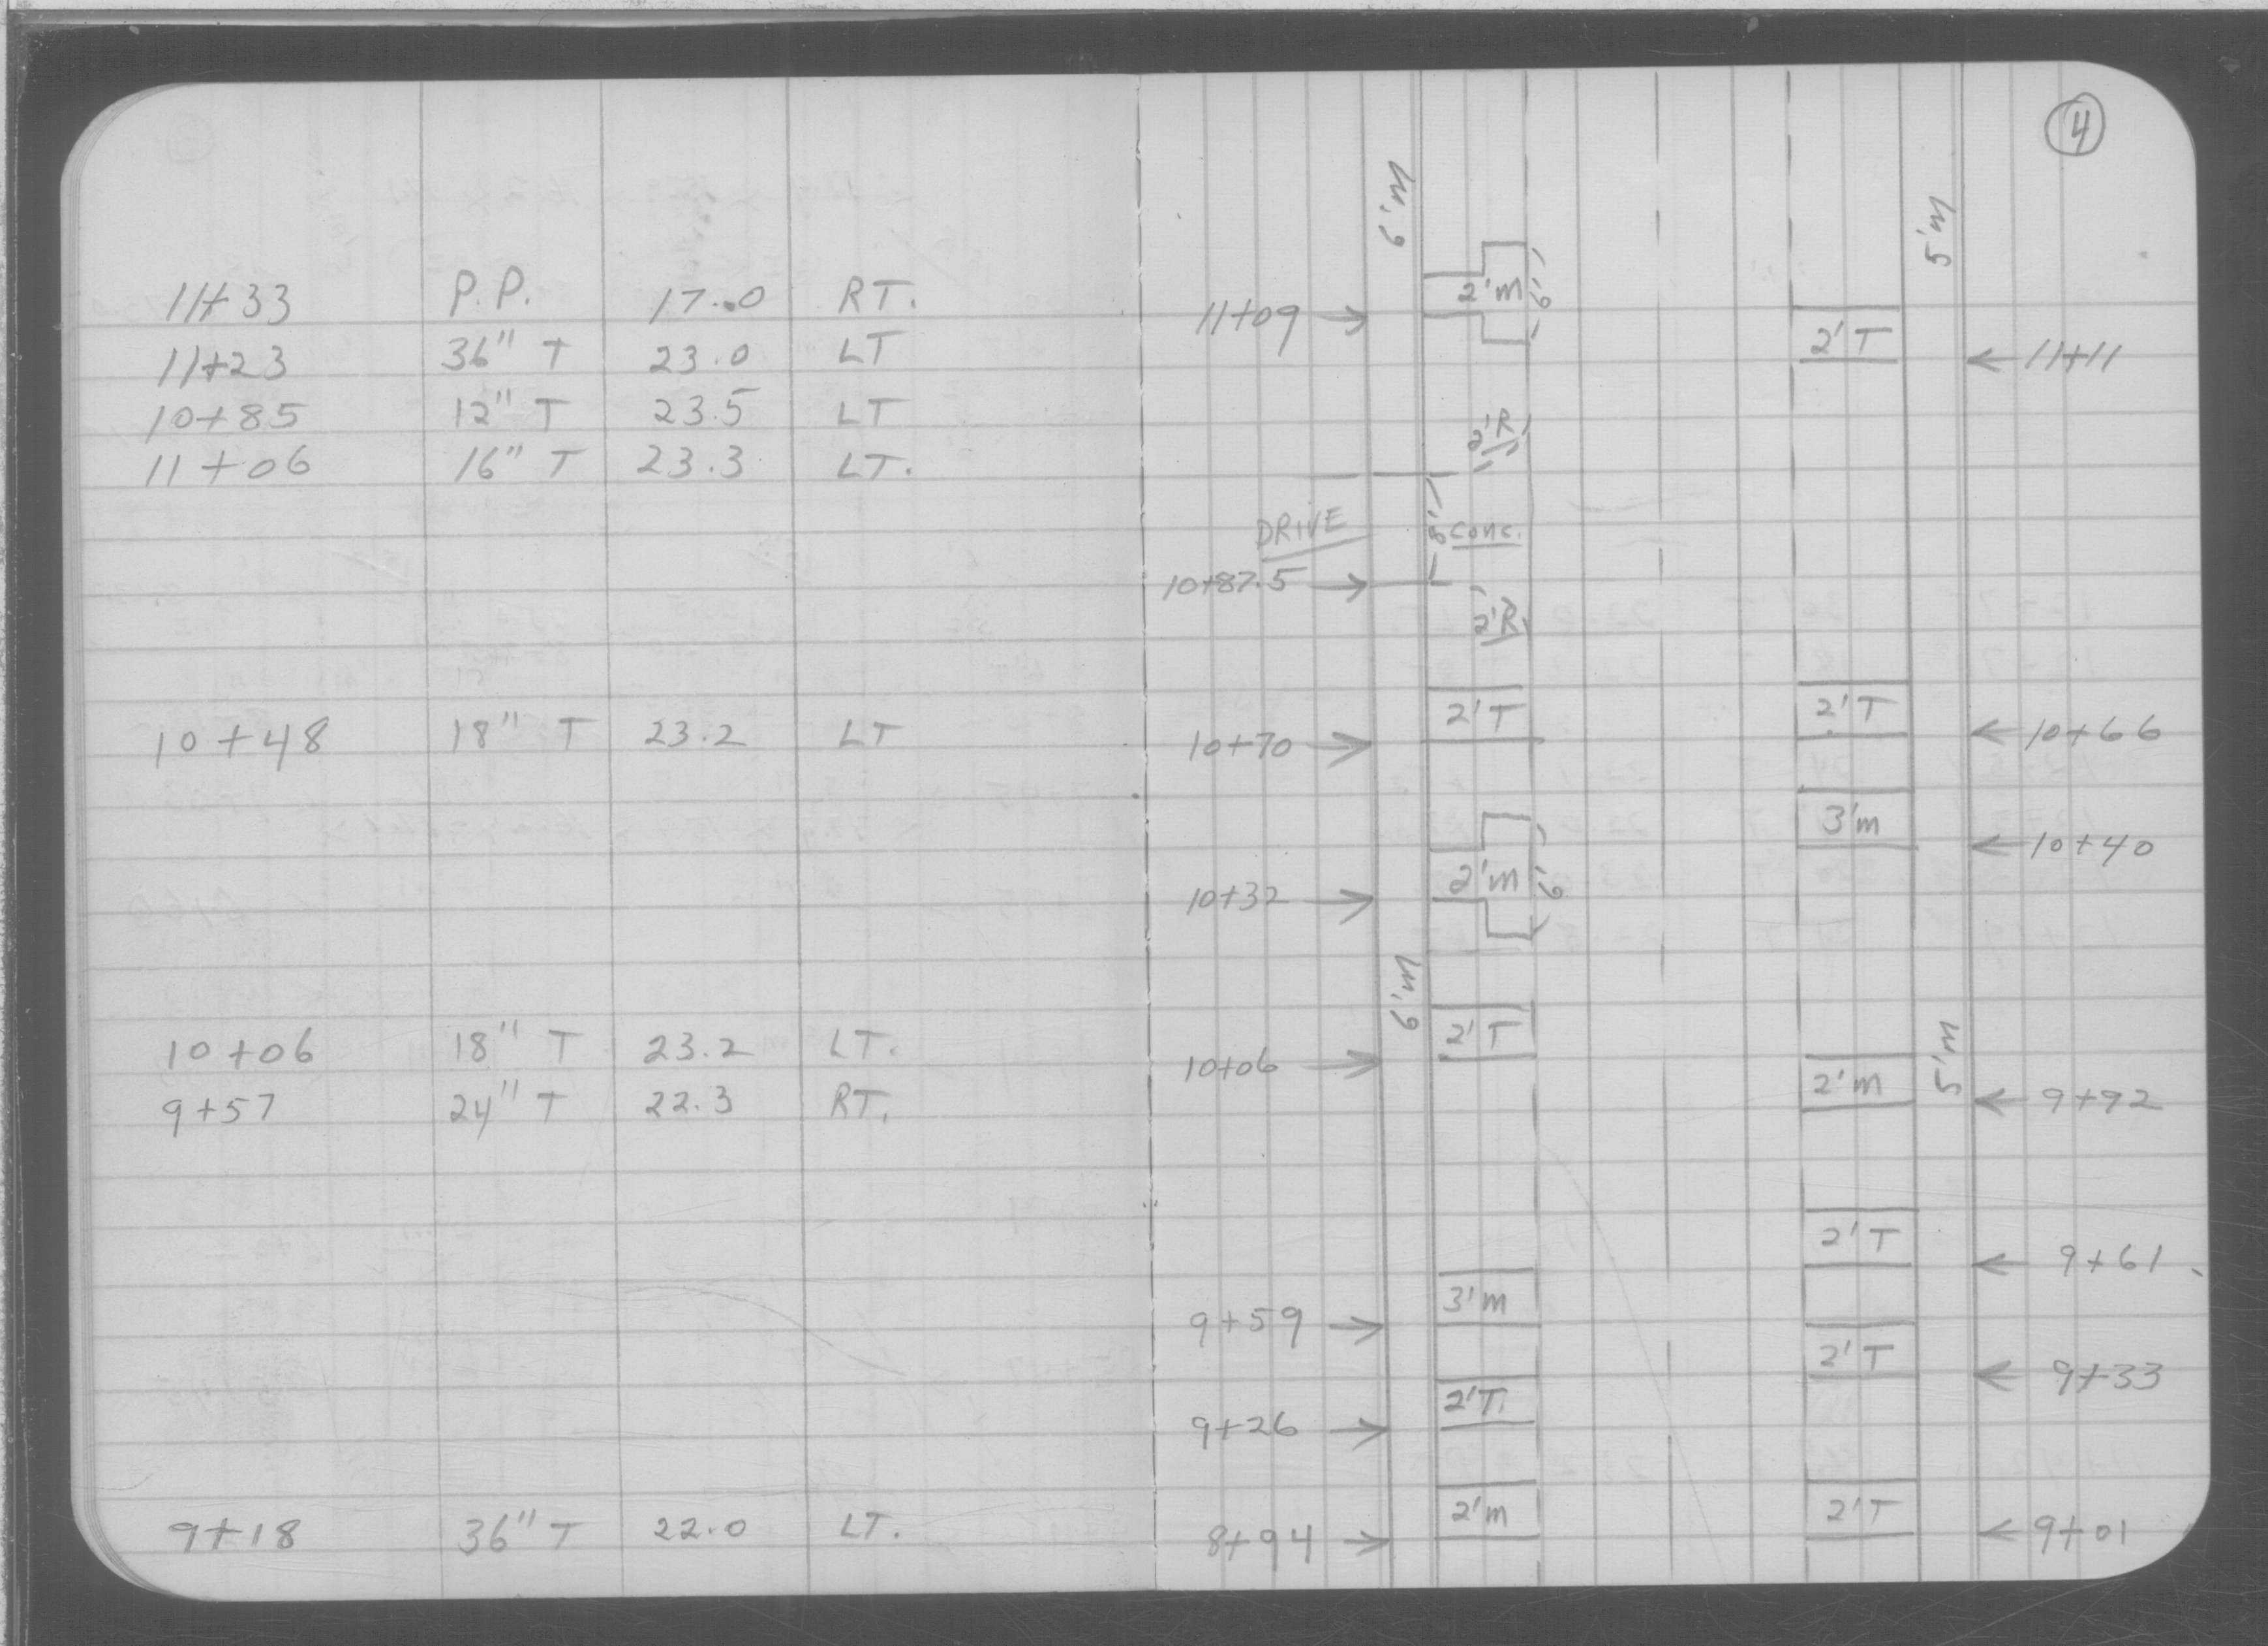 11+33 P.P. 17.0 RT.
11+23 36" T 23.0 LT
10+85 12" T 23.5 LT
11+06 16" T 23.3 LT.
10+48 18" T 23.2 LT
10+06 18" T 23.2 LT.
9+57 24" T 22.3 RT.
9+18 36" T 22.0 LT.
4
6'M
5'M
11+09 → 2'm 6'
2'T ← 11+11
2'R
DRIVE 8' conc.
10+87.5 →
2'R
10+70 → 2'T
2'T ← 10+66
3'm ← 10+40
10+32 → 2'm 6'
6'M
10+06 → 2'T
5'M
2'm ← 9+92
2'T ← 9+61
9+59 → 3'm
2'T ← 9+33
9+26 → 2'T.
8+94 → 2'm
2'T ← 9+01